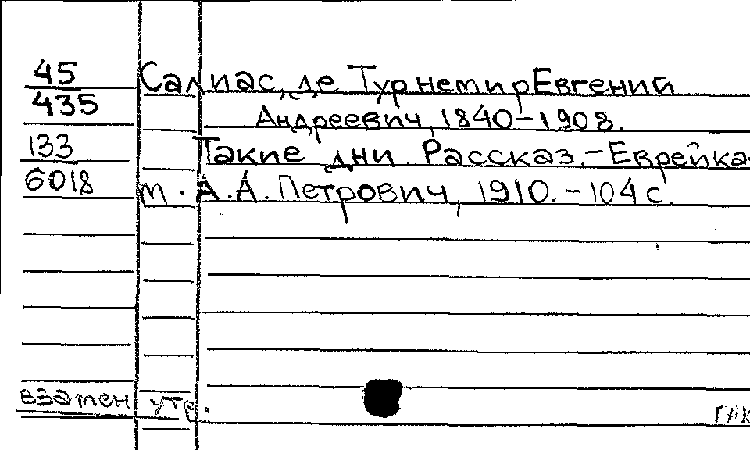 45 Салиас, де Турнемир Евгений
435 Андреевич, 1840-1908.
133 Такие дни. Рассказ.-Еврейка-
6018 т. А.А. Петрович, 1910.-104 с.
взамен утр.